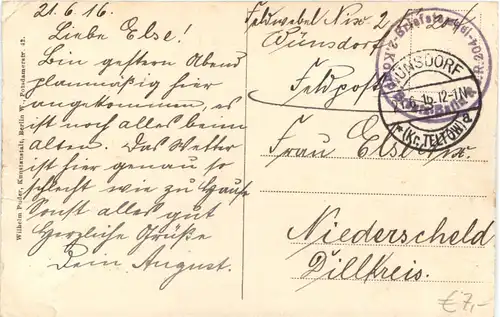 21.6.16.
Liebe Else!
Bin gestern Abend
planmäßig hier
angekommen, es
ist noch alles beim
alten. Das Wetter
ist hier genau so
schlecht wie zu Hause
Sonst alles gut
Herzliche Grüße
Dein August.
Wilhelm Puder, Kunstanstalt, Berlin W., Potsdamerstr. 42.
Feldwebel
Wünsdorf
Feldpost
WÜNSDORF
16.12-1N
*(Kr. TELTOW)a
Frau Else
Niederscheld
Dillkreis.
€7,-